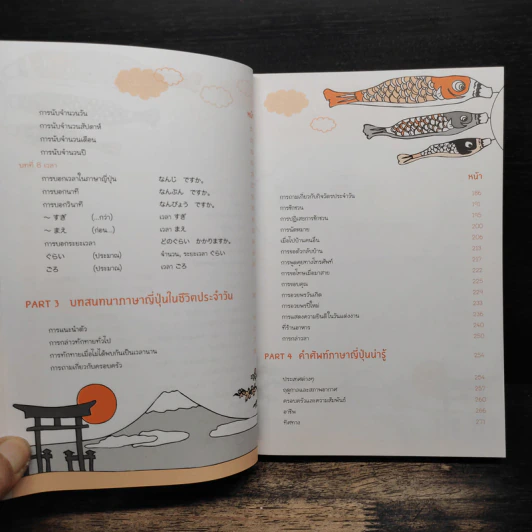 การนับจำนวนวัน
การนับจำนวนสัปดาห์
การนับจำนวนเดือน
การนับจำนวนปี
บทที่ 5 เวลา
การบอกเวลาในภาษาญี่ปุ่น なんじ ですか。
การบอกนาที なんぷん ですか。
การบอกวินาที なんびょう ですか。
～ すぎ (...กว่า) เวลา すぎ
～ まえ (ก่อน...) เวลา まえ
การบอกระยะเวลา どのぐらい かかりますか。
ぐらい (ประมาณ) จำนวน, ระยะเวลา ぐらい
ごろ (ประมาณ) เวลา ごろ
PART 3 บทสนทนาภาษาญี่ปุ่นในชีวิตประจำวัน
การแนะนำตัว
การกล่าวทักทายทั่วไป
การทักทายเมื่อไม่ได้พบกันเป็นเวลานาน
การถามเกี่ยวกับครอบครัว
หน้า
การถามเกี่ยวกับกิจวัตรประจำวัน
การชักชวน
การปฏิเสธการชักชวน
การนัดหมาย
เมื่อไปบ้านคนอื่น
การขอตัวกลับบ้าน
การพูดคุยทางโทรศัพท์
การขอโทษเมื่อมาสาย
การขอบคุณ
การอวยพรวันเกิด
การอวยพรปีใหม่
การแสดงความยินดีในวันแต่งงาน
ที่ร้านอาหาร
การกล่าวลา
PART 4 คำศัพท์ภาษาญี่ปุ่นน่ารู้
ประเทศต่างๆ
ฤดูกาลและสภาพอากาศ
ครอบครัวและความสัมพันธ์
อาชีพ
ทิศทาง